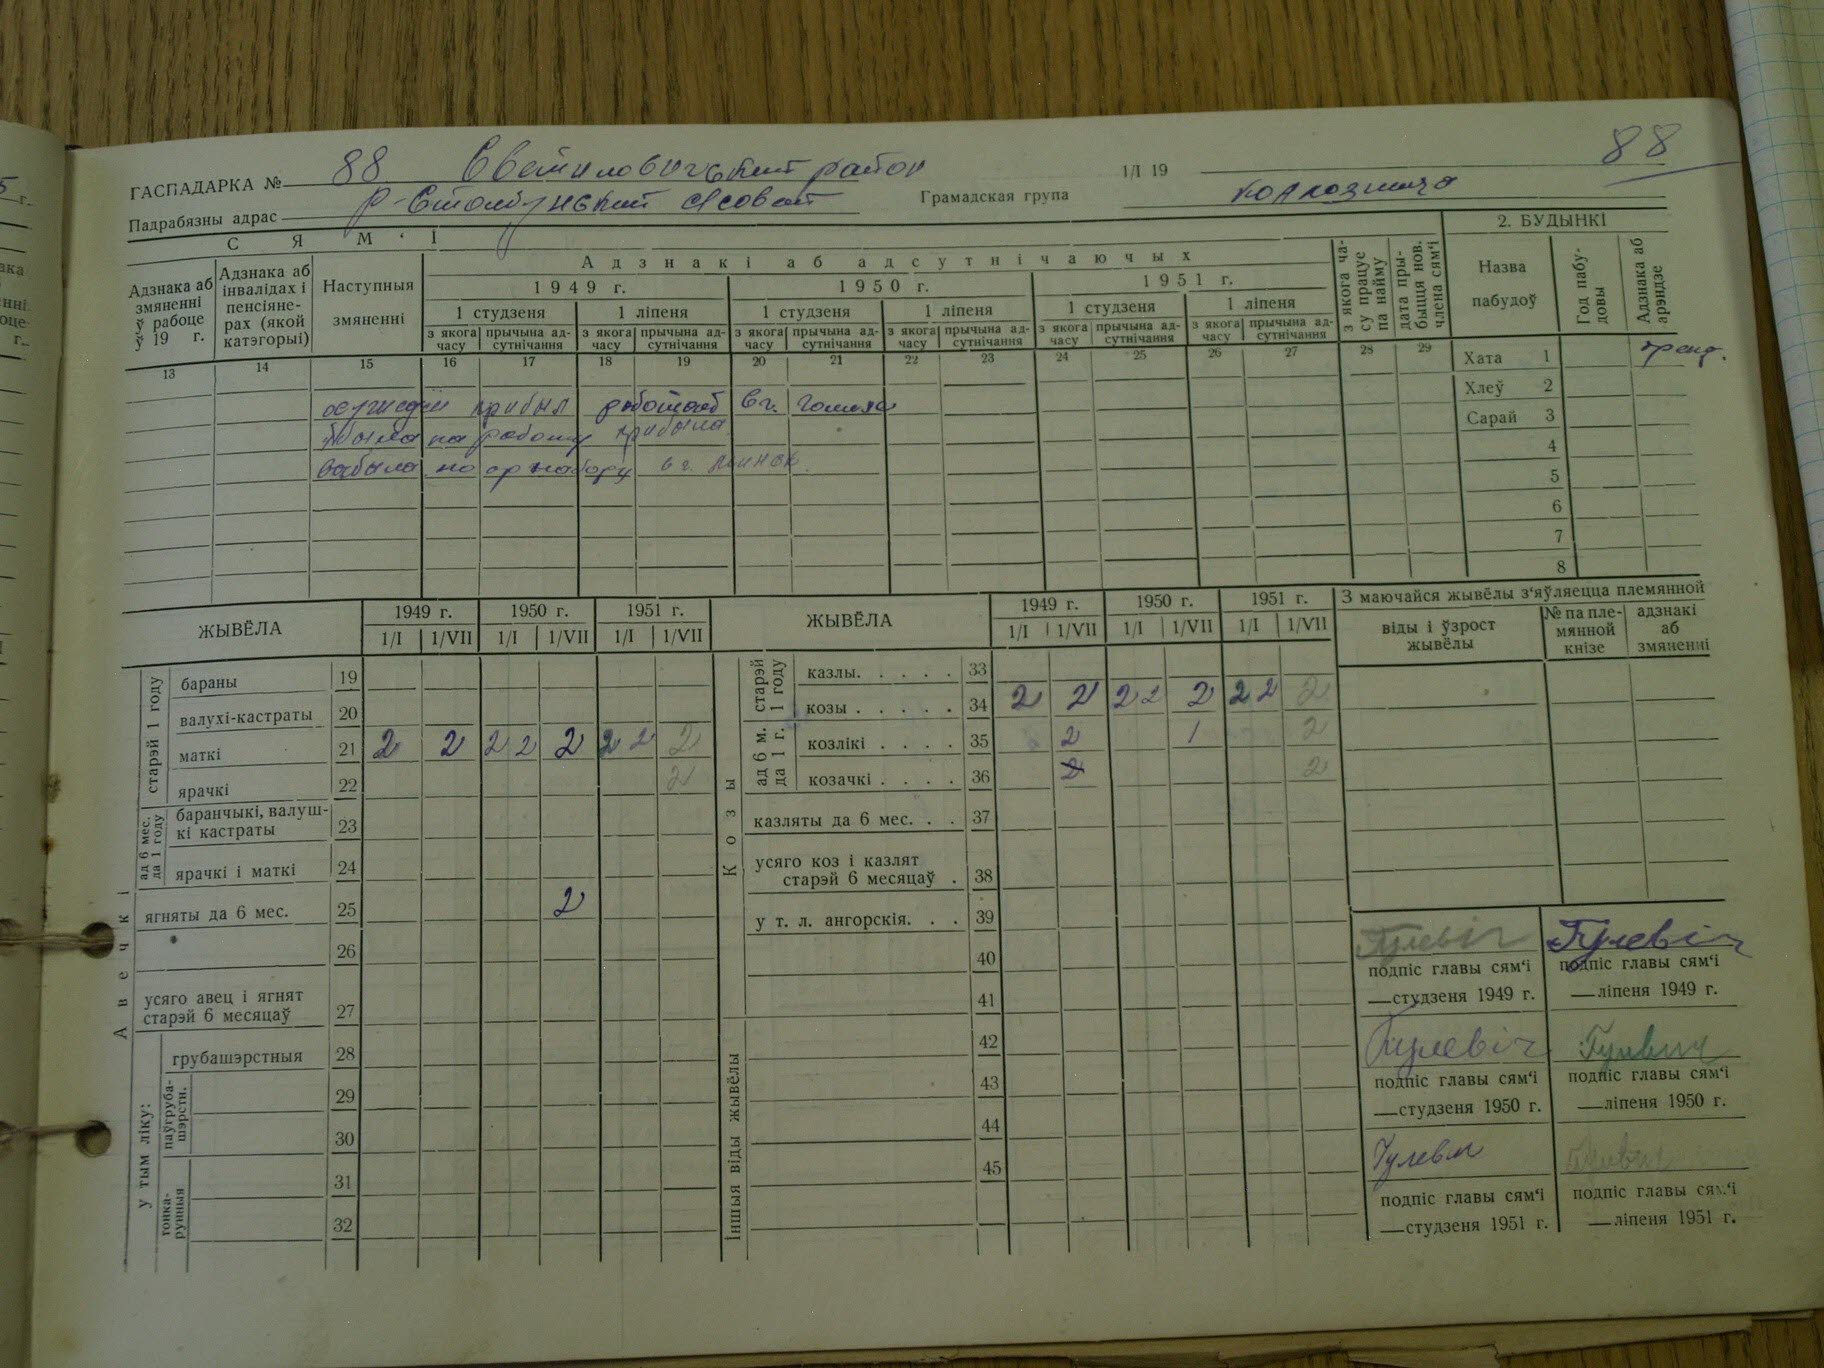 88
ГАСПАДАРКА № 88 Светиловичский район 1/I 19
Падрабязны адрас Р-Столбунский с/совет Грамадская група колхозница
СЯМ‘І
Адзнака аб змяненні ў рабоце ў 19 г.
Адзнака аб інваліда­х і пенсіяне-
рах (якой катэгорыі)
Наступныя змяненні
Адзнакі аб адсутнічаючых
1949 г. 1950 г. 1951 г.
1 студзеня 1 ліпеня 1 студзеня 1 ліпеня 1 студзеня 1 ліпеня
з якога часу прычына ад-сутнічання з якога часу прычына ад-сутнічання з якога часу прычына ад-сутнічання з якога часу прычына ад-сутнічання з якога часу прычына ад-сутнічання з якога часу прычына ад-сутнічання
з якога ча-су працуе па найму
дата пры-быцця нов. члена сям‘і
2. БУДЫНКІ
Назва пабудоў
Год пабу-довы
Адзнака аб арэндзе
13 14 15 16 17 18 19 20 21 22 23 24 25 26 27 28 29
Хата 1
Хлеў 2
Сарай 3
4
5
6
7
8
прибыл работает в г.
на работу прибыла
по оргнабору в г.
ЖЫВЁЛА 1949 г. 1950 г. 1951 г.
1/I 1/VII 1/I 1/VII 1/I 1/VII
Авечкі
старэй 1 году
бараны 19
валухі-кастраты 20
маткі 21 2 2 2 2 2 2 2 2
ярачкі 22 2
ад 6 мес. да 1 году
баранчыкі, валуш-
кі кастраты 23
ярачкі і маткі 24
ягняты да 6 мес. 25 2
26
усяго авец і ягнят
старэй 6 месяцаў 27
у тым ліку:
грубашэрстныя 28
паўгруба-шэрстн.
29
30
тонка-рунныя
31
32
ЖЫВЁЛА 1949 г. 1950 г. 1951 г.
1/I 1/VII 1/I 1/VII 1/I 1/VII
Козы
старэй 1 году
казлы. . . . . 33
козы . . . . . 34 2 2 2 2 2 2 2 2
ад 6 м. да 1 г.
козлікі . . . . 35 2 1 2
козачкі . . . . 36 2 2
казляты да 6 мес. . . 37
усяго коз і казлят
старэй 6 месяцаў . 38
у т. л. ангорскія. . . 39
40
41
Іншыя віды жывёлы
42
43
44
45
З маючайся жывёлы з‘яўляецца племянной
віды і ўзрост жывёлы
№ па пле-мянной кнізе
адзнакі аб змяненні
Гулевіч Гулевіч
подпіс главы сям‘і подпіс главы сям‘і
—студзеня 1949 г. —ліпеня 1949 г.
Гулевіч Гулевич
подпіс главы сям‘і подпіс главы сям‘і
—студзеня 1950 г. —ліпеня 1950 г.
Гулевич
подпіс главы сям‘і подпіс главы сям‘і
—студзеня 1951 г. —ліпеня 1951 г.